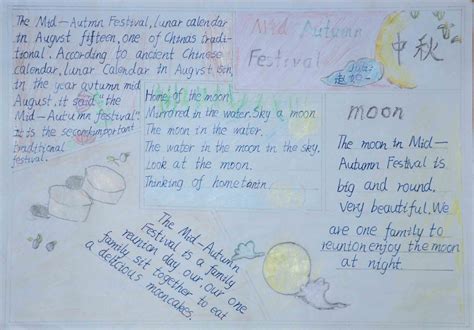 The Mid—Autmn Festival, lunar calendar
in August fifteen, one of Chinas tradi-
tional. According to ancient Chinese
calendar, Lunar Calendar in August 15th,
in the year autumn mid
August, it said "the
Mid—Autumn festival"
It is the second important
traditional
festival.
Mid Autumn
Festival
中秋
Home of the moon
Mirrored in the water. Sky a moon
The moon in the water.
The water in the moon in the sky.
Look at the moon.
Thinking of
moon
The moon in Mid—
Autumn Festival is
big and round.
Very beautiful. We
are one family to
reunion enjoy the moon
at night.
The Mid—Autumn
Festival is a family
reunion day our. Our one
family sit together to eat
a delicious mooncakes.